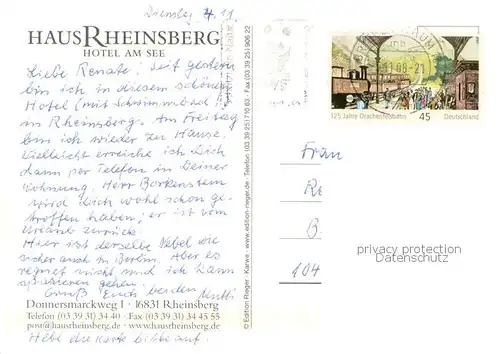 Dienstag 4.11.
HAUS RHEINSBERG
HOTEL AM SEE
Liebe Renate! Seit gestern
bin ich in diesem schönen
Hotel (mit Schwimmbad
in Rheinsberg. Am Freitag
bin ich wieder zu Hause.
Vielleicht erreiche ich Dich
dann per Telefon in Deiner
Wohnung. Herr Borkenstein
wird Dich wohl schon ge-
troffen haben; er ist vom
Urlaub zurück.
Hier ist derselbe Nebel wie
sicher auch in Berlin. Aber es
regnet nicht und ich kann
spazieren gehen.
Gruß Euch beiden Mutti
Donnersmarckweg 1 · 16831 Rheinsberg
Telefon (03 39 31) 34 40 · Fax (03 39 31) 34 45 55
post@hausrheinsberg.de · www.hausrheinsberg.de
Hebe die Karte bitte auf.
© Edition Rieger · Karwe · www.edition-rieger.de · Telefon (03 39 25) 7 10 63 · Fax (03 39 25) 906 22
125 Jahre Drachenfelsbahn
45
Deutschland
Frau
Re
B
104
privacy protection
Datenschutz